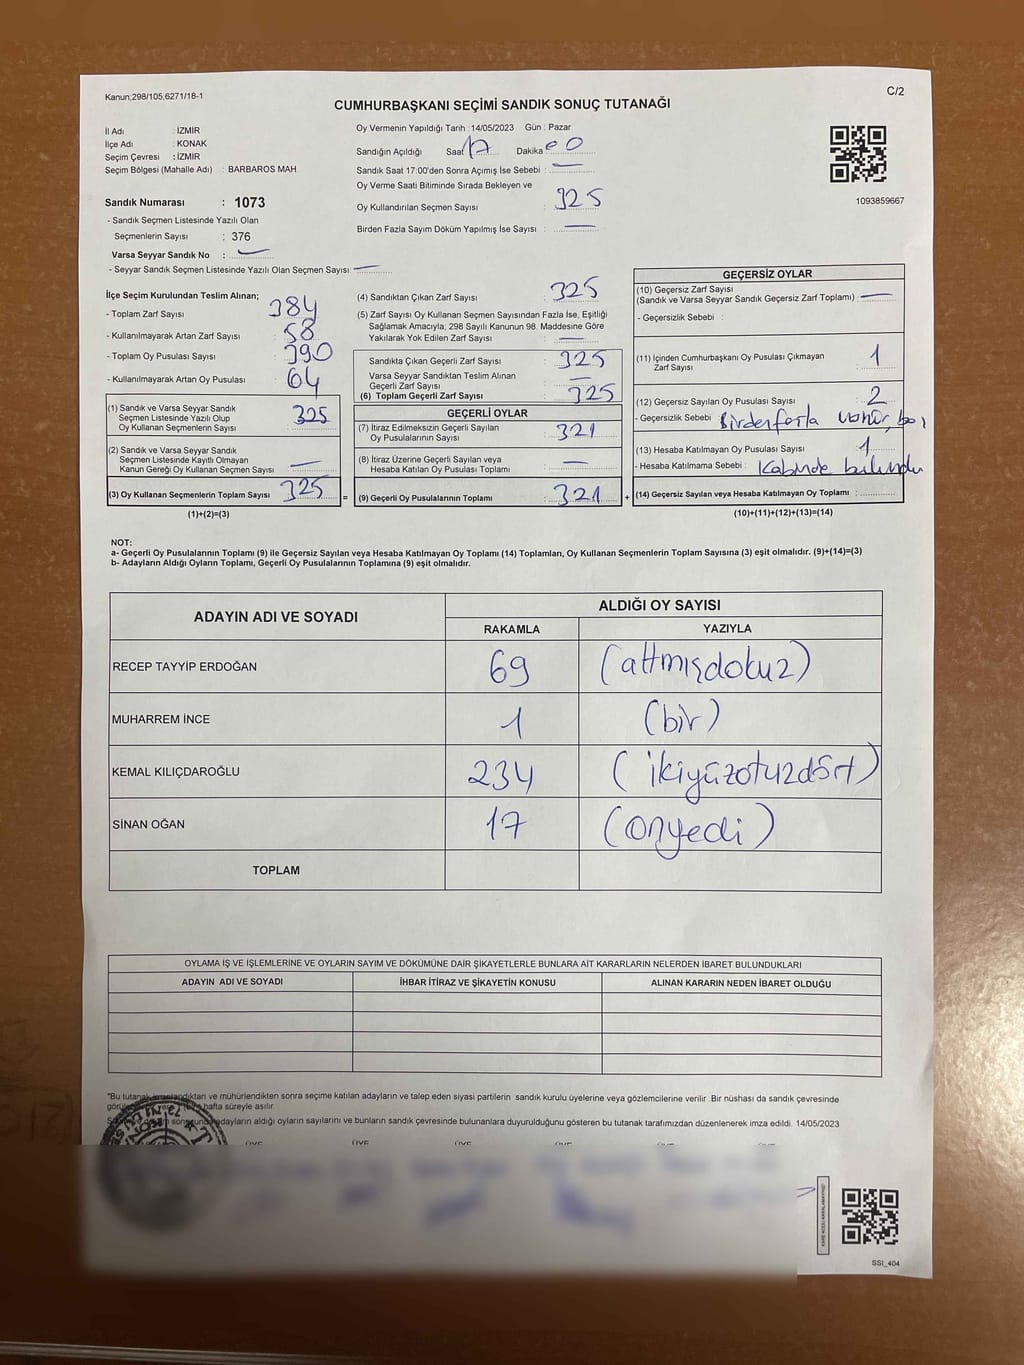 Kanun;298/105,6271/18-1
C/2
CUMHURBAŞKANI SEÇİMİ SANDIK SONUÇ TUTANAĞI
İl Adı : İZMİR
İlçe Adı : KONAK
Seçim Çevresi : İZMİR
Seçim Bölgesi (Mahalle Adı) : BARBAROS MAH
Sandık Numarası : 1073
- Sandık Seçmen Listesinde Yazılı Olan
Seçmenlerin Sayısı : 376
Varsa Seyyar Sandık No : —
- Seyyar Sandık Seçmen Listesinde Yazılı Olan Seçmen Sayısı : —
Oy Vermenin Yapıldığı Tarih : 14/05/2023 Gün : Pazar
Sandığın Açıldığı Saat 17 Dakika 00
Sandık Saat 17:00'den Sonra Açımış İse Sebebi : —
Oy Verme Saati Bitiminde Sırada Bekleyen ve
Oy Kullandırılan Seçmen Sayısı : 325
Birden Fazla Sayım Döküm Yapılmış İse Sayısı : —
1093859667
İlçe Seçim Kurulundan Teslim Alınan;
- Toplam Zarf Sayısı : 384
- Kullanılmayarak Artan Zarf Sayısı : 58
- Toplam Oy Pusulası Sayısı : 390
- Kullanılmayarak Artan Oy Pusulası : 64
(1) Sandık ve Varsa Seyyar Sandık
Seçmen Listesinde Yazılı Olup
Oy Kullanan Seçmenlerin Sayısı : 325
(2) Sandık ve Varsa Seyyar Sandık
Seçmen Listesinde Kayıtlı Olmayan
Kanun Gereği Oy Kullanan Seçmen Sayısı : —
(3) Oy Kullanan Seçmenlerin Toplam Sayısı : 325 =
(1)+(2)=(3)
(4) Sandıktan Çıkan Zarf Sayısı : 325
(5) Zarf Sayısı Oy Kullanan Seçmen Sayısından Fazla İse, Eşitliği
Sağlamak Amacıyla; 298 Sayılı Kanunun 98. Maddesine Göre
Yakılarak Yok Edilen Zarf Sayısı : —
Sandıkta Çıkan Geçerli Zarf Sayısı : 325
Varsa Seyyar Sandıktan Teslim Alınan
Geçerli Zarf Sayısı : —
(6) Toplam Geçerli Zarf Sayısı : 325
GEÇERLİ OYLAR
(7) İtiraz Edilmeksizin Geçerli Sayılan
Oy Pusulalarının Sayısı : 321
(8) İtiraz Üzerine Geçerli Sayılan veya
Hesaba Katılan Oy Pusulası Toplamı : —
(9) Geçerli Oy Pusulalarının Toplamı : 321 +
GEÇERSİZ OYLAR
(10) Geçersiz Zarf Sayısı
(Sandık ve Varsa Seyyar Sandık Geçersiz Zarf Toplamı) : —
- Geçersizlik Sebebi :
(11) İçinden Cumhurbaşkanı Oy Pusulası Çıkmayan
Zarf Sayısı : 1
(12) Geçersiz Sayılan Oy Pusulası Sayısı : 2
- Geçersizlik Sebebi : Birden fazla
(13) Hesaba Katılmayan Oy Pusulası Sayısı : 1
- Hesaba Katılmama Sebebi : Kabinde bulundu
(14) Geçersiz Sayılan veya Hesaba Katılmayan Oy Toplamı :
(10)+(11)+(12)+(13)=(14)
NOT:
a- Geçerli Oy Pusulalarının Toplamı (9) ile Geçersiz Sayılan veya Hesaba Katılmayan Oy Toplamı (14) Toplamları, Oy Kullanan Seçmenlerin Toplam Sayısına (3) eşit olmalıdır. (9)+(14)=(3)
b- Adayların Aldığı Oyların Toplamı, Geçerli Oy Pusulalarının Toplamına (9) eşit olmalıdır.
ADAYIN ADI VE SOYADI
ALDIĞI OY SAYISI
RAKAMLA YAZIYLA
RECEP TAYYİP ERDOĞAN 69 (altmışdokuz)
MUHARREM İNCE 1 (bir)
KEMAL KILIÇDAROĞLU 234 (ikiyüzotuzdört)
SİNAN OĞAN 17 (onyedi)
TOPLAM
OYLAMA İŞ VE İŞLEMLERİNE VE OYLARIN SAYIM VE DÖKÜMÜNE DAİR ŞİKAYETLERLE BUNLARA AİT KARARLARIN NELERDEN İBARET BULUNDUKLARI
ADAYIN ADI VE SOYADI İHBAR İTİRAZ VE ŞİKAYETİN KONUSU ALINAN KARARIN NEDEN İBARET OLDUĞU
"Bu tutanak ve mühürlendikten sonra seçime katılan adayların ve talep eden siyasi partilerin sandık kurulu üyelerine veya gözlemcilerine verilir. Bir nüshası da sandık çevresinde
hafta süreyle asılır.
adayların aldığı oyların sayılarını ve bunların sandık çevresinde bulunanlara duyurulduğunu gösteren bu tutanak tarafımızdan düzenlenerek imza edildi. 14/05/2023
SSI_404